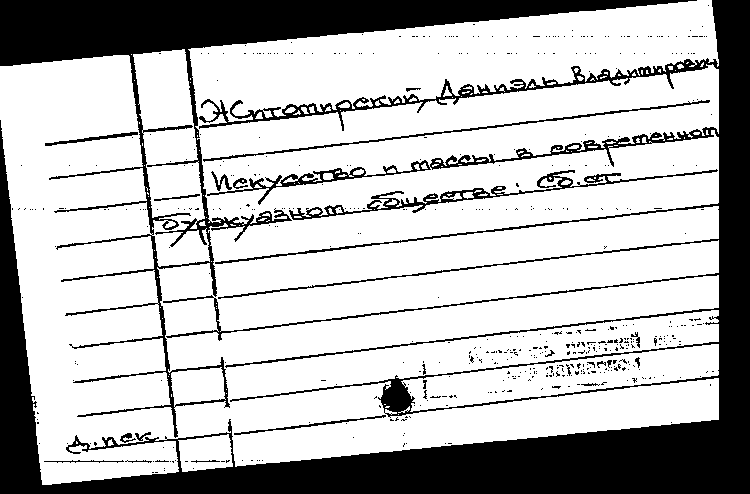 Житомирский, Даниэль Владимирович
Искусство и массы в современном
буржуазном обществе: Сб.ст